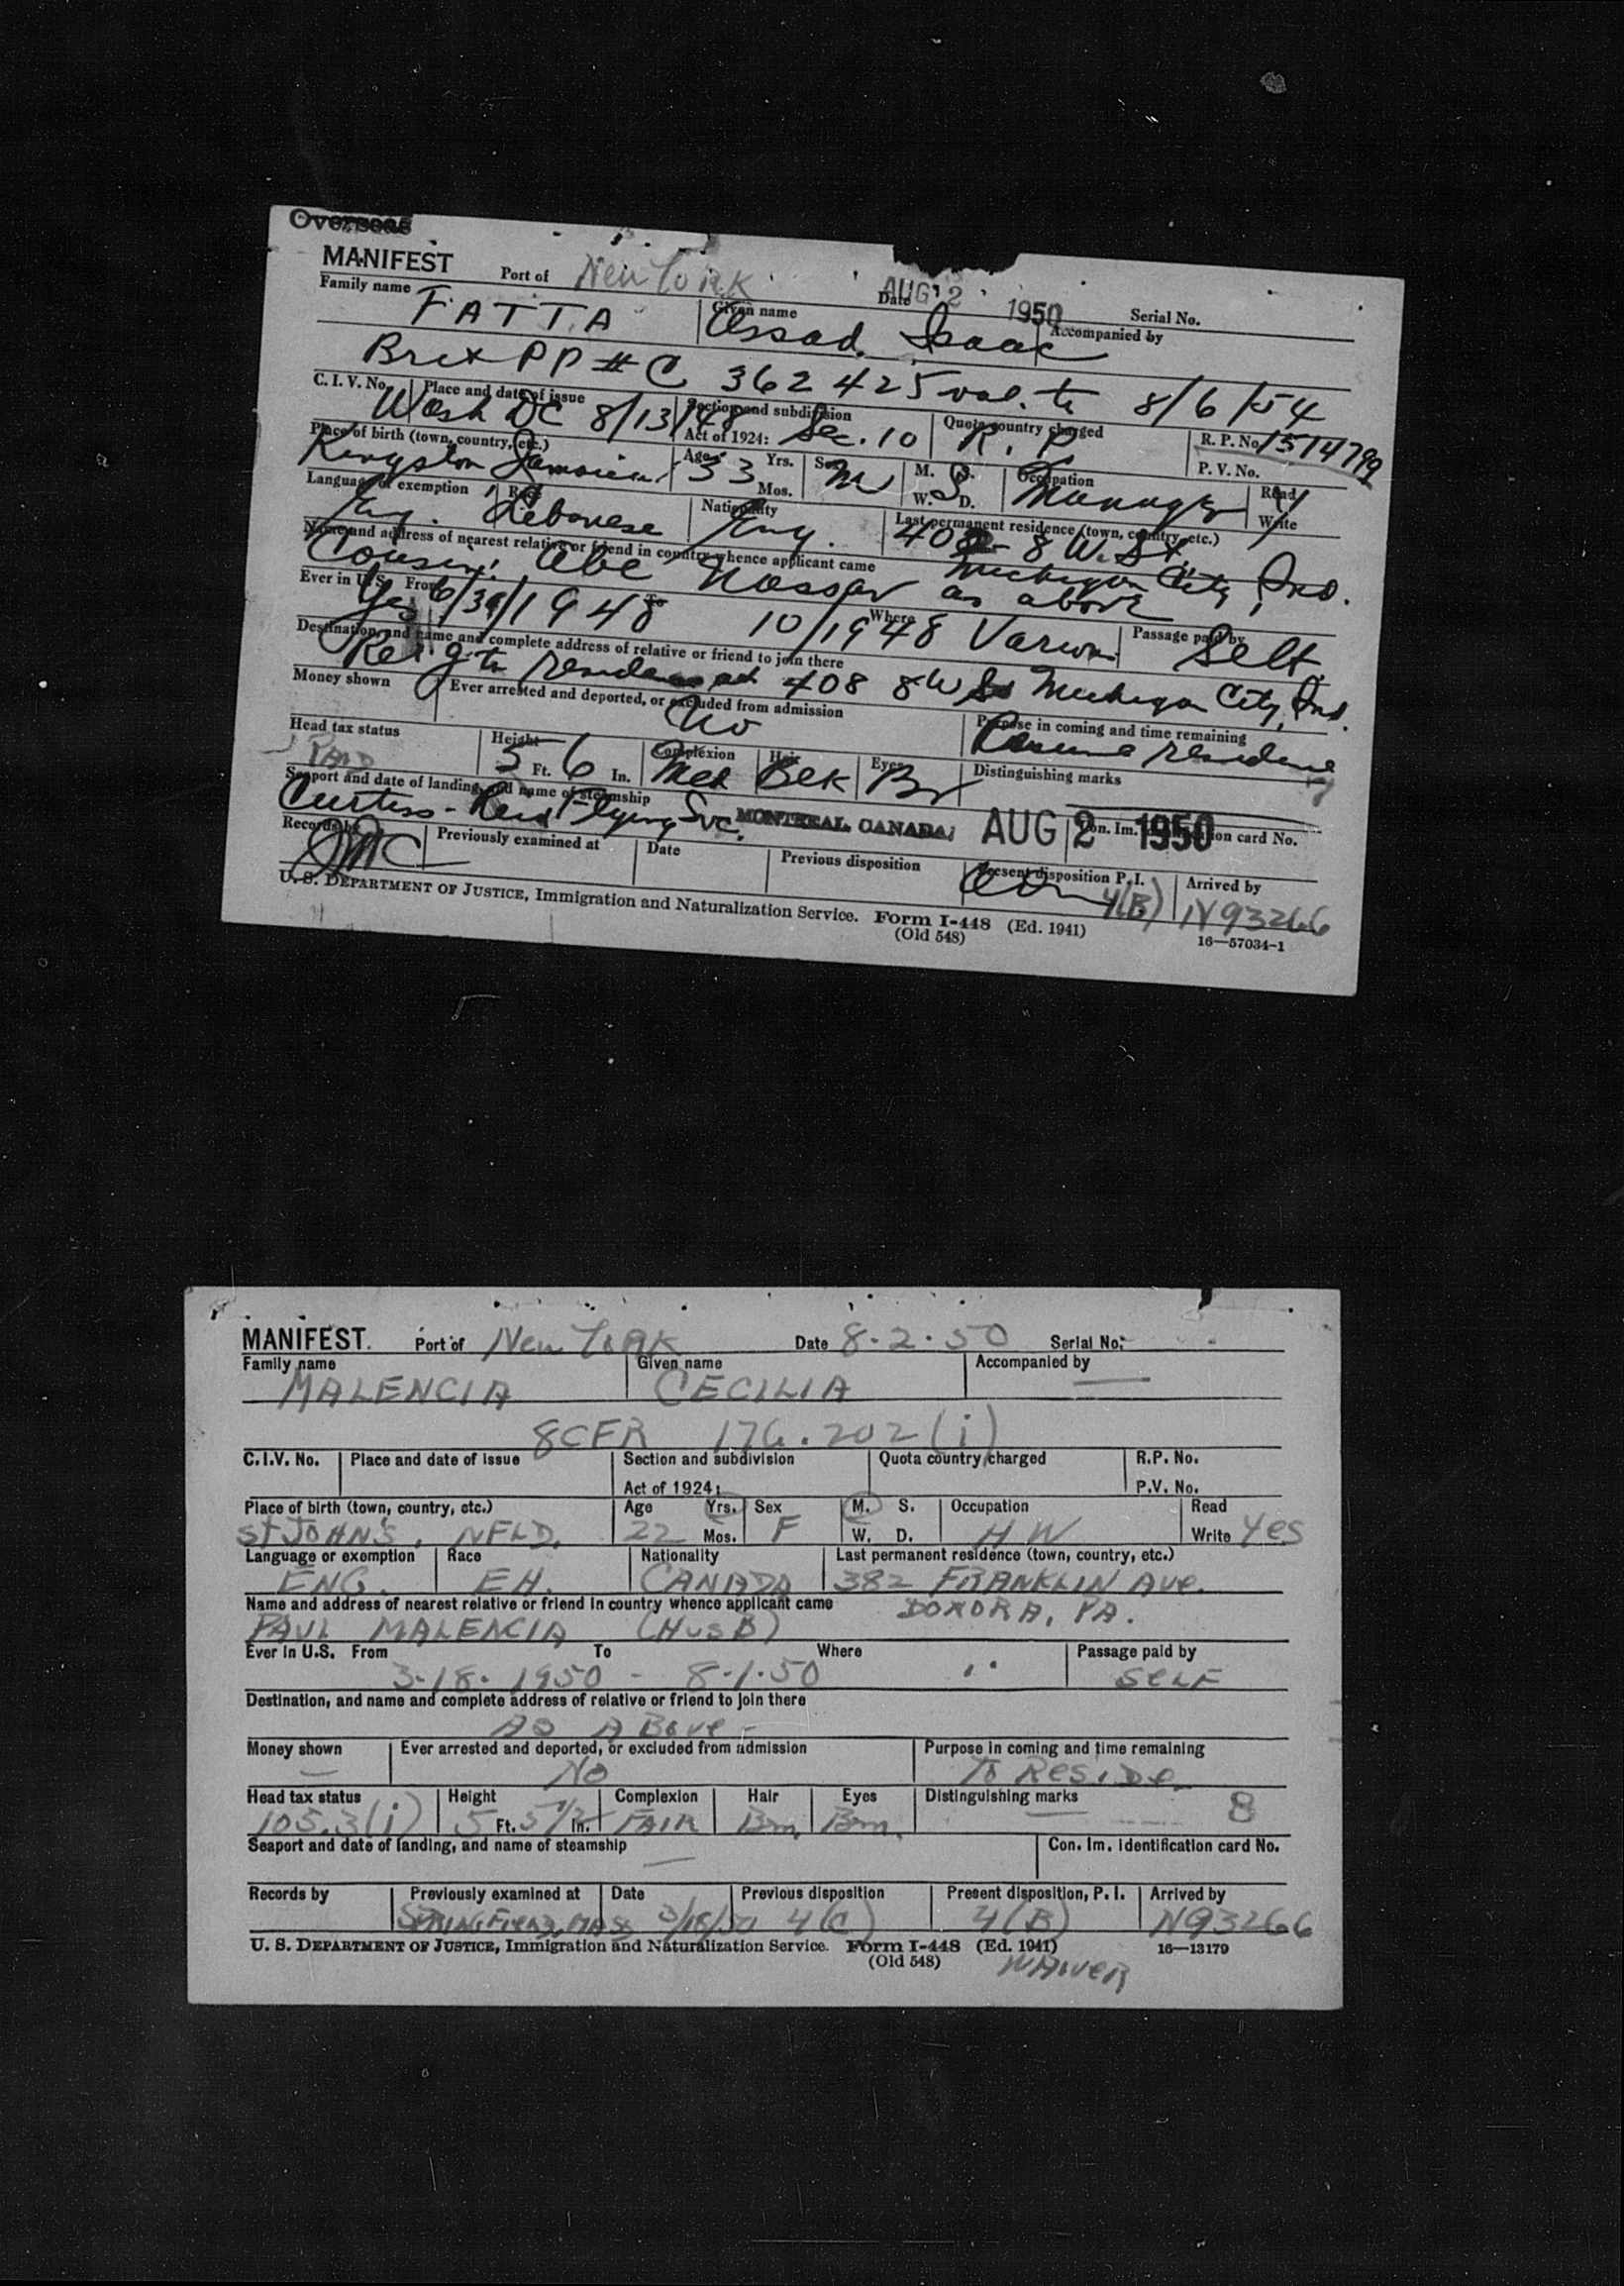 Overseas
MANIFEST Port of New York Date AUG 2 1950 Serial No.
Family name FATTA Given name Assad Isaac Accompanied by
Brit PP # C 362425 val. to 8/6/54
C. I. V. No. Place and date of issue Wash DC 8/13/48 Section and subdivision Act of 1924: Sec. 10 Quota country charged R. P. R. P. No. 1514799 P. V. No.
Place of birth (town, country, etc.) Kingston Jamaica Age 33 Yrs. Mos. Sex M M. S. W. D. S Occupation Manager Read Write Y
Language or exemption Eng. Race Lebanese Nationality Eng. Last permanent residence (town, country, etc.) 408 - 8 W. St.
Michigan City, Ind.
Name and address of nearest relative or friend in country whence applicant came
Cousin: Abe Nassar as above
Ever in U.S. Yes From 6/30/1948 To 10/1948 Where Various Passage paid by Self
Destination, and name and complete address of relative or friend to join there
Retg to residence at 408 8 W St Michigan City, Ind.
Money shown Ever arrested and deported, or excluded from admission No Purpose in coming and time remaining Resume residence
Head tax status PAID Height 5 Ft. 6 In. Complexion Med Hair Blk Eyes Br Distinguishing marks
Seaport and date of landing, and name of steamship
Curtiss-Reid Flying Svc. MONTREAL, CANADA; AUG 2 1950 Con. Im. Identification card No.
Records by Previously examined at Date Previous disposition Present disposition P. I. 4(B) Arrived by N93266
U. S. DEPARTMENT OF JUSTICE, Immigration and Naturalization Service. Form I-448 (Ed. 1941)
(Old 548) 16—57034-1
MANIFEST. Port of New York Date 8-2-50 Serial No.
Family name MALENCIA Given name CECILIA Accompanied by —
8CFR 176.202(i)
C.I.V. No. Place and date of issue Section and subdivision Quota country charged R.P. No.
Act of 1924: P.V. No.
Place of birth (town, country, etc.) Age Yrs. Sex M. S. Occupation Read
ST JOHN'S, NFLD. 22 Mos. F W. D. HW Write Yes
Language or exemption Race Nationality Last permanent residence (town, country, etc.)
ENG. EH. CANADA 382 FRANKLIN Ave.
Name and address of nearest relative or friend in country whence applicant came DONORA, PA.
PAUL MALENCIA (HUSB)
Ever in U.S. From To Where Passage paid by
3-18-1950 - 8-1-50 " SELF
Destination, and name and complete address of relative or friend to join there
AS ABOVE -
Money shown Ever arrested and deported, or excluded from admission Purpose in coming and time remaining
— No To Reside
Head tax status Height Complexion Hair Eyes Distinguishing marks
105.3(i) 5 Ft. 5 1/2 In. FAIR Brn. Brn. — 8
Seaport and date of landing, and name of steamship Con. Im. Identification card No.
—
Records by Previously examined at Date Previous disposition Present disposition, P. I. Arrived by
SPRINGFIELD, MASS 3/18/50 4(C) 4(B) N93266
U. S. DEPARTMENT OF JUSTICE, Immigration and Naturalization Service. Form I-448 (Ed. 1941) 16—13179
(Old 548) WAIVER